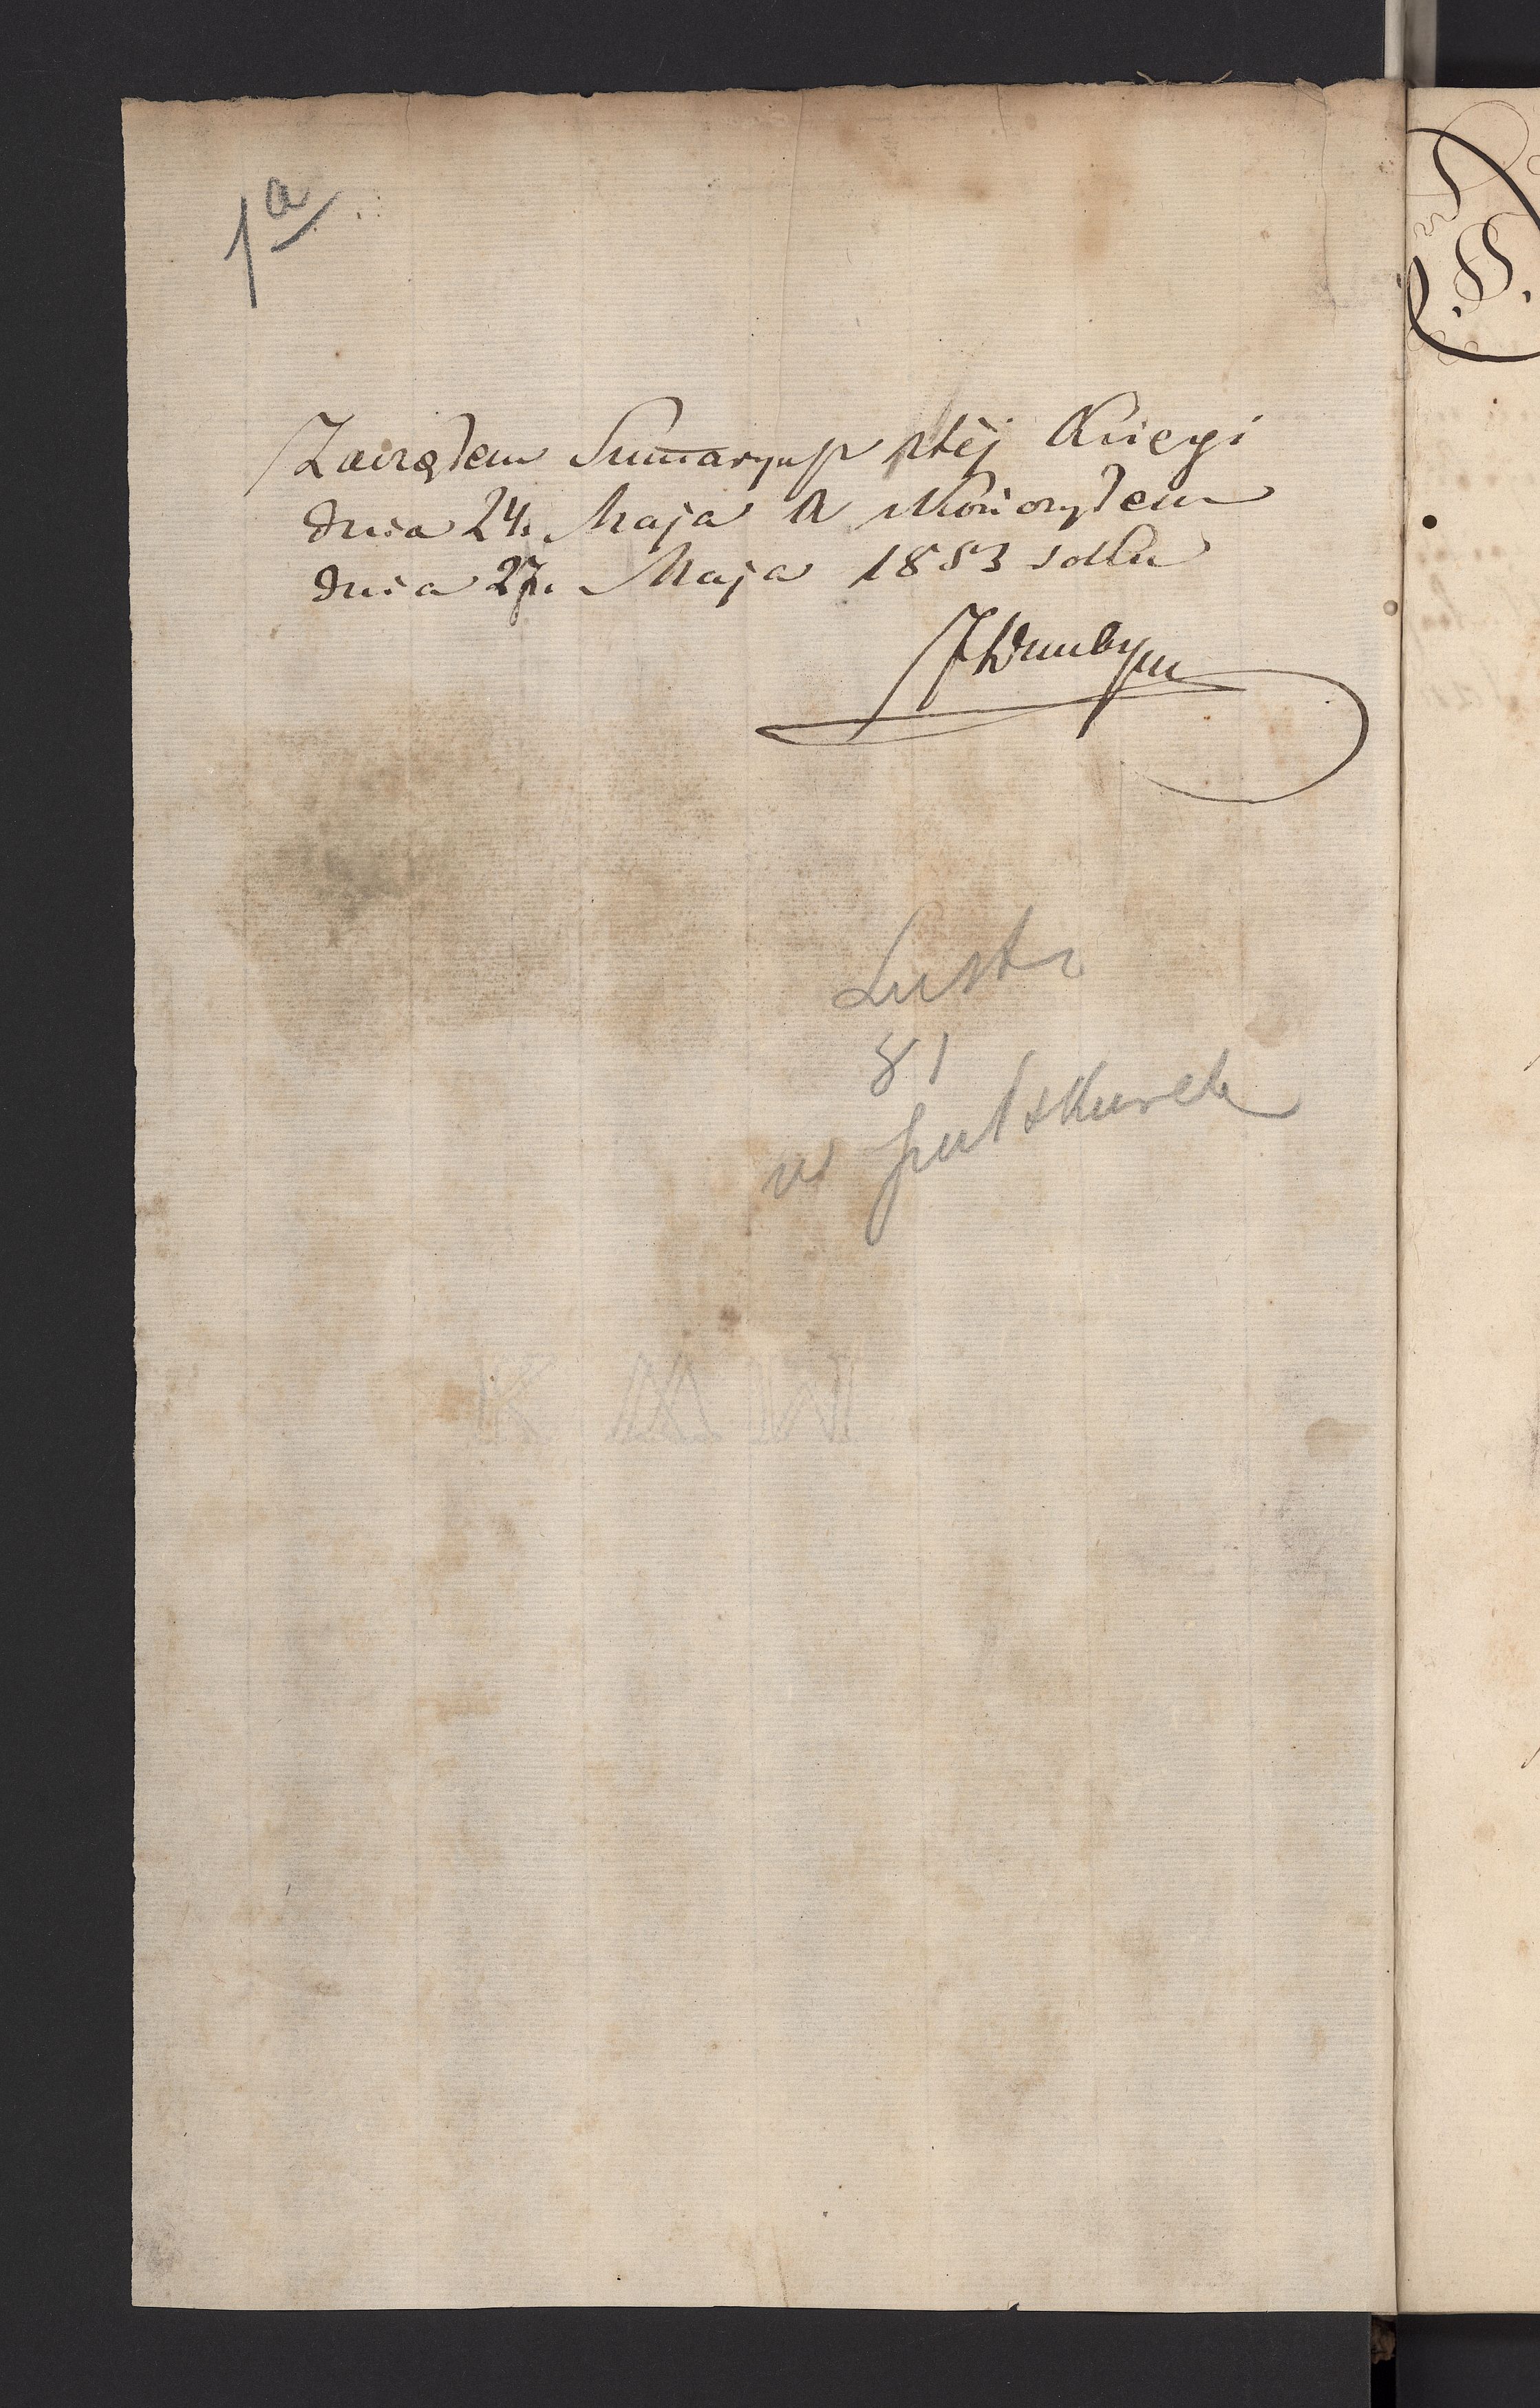 1a
Zacząłem Sumaryusz stéj Księgi
dnia 24. Maja A skończyłem
dnia 27. Maja 1853 rolku
Lustr
81
w pułskurek
K M W